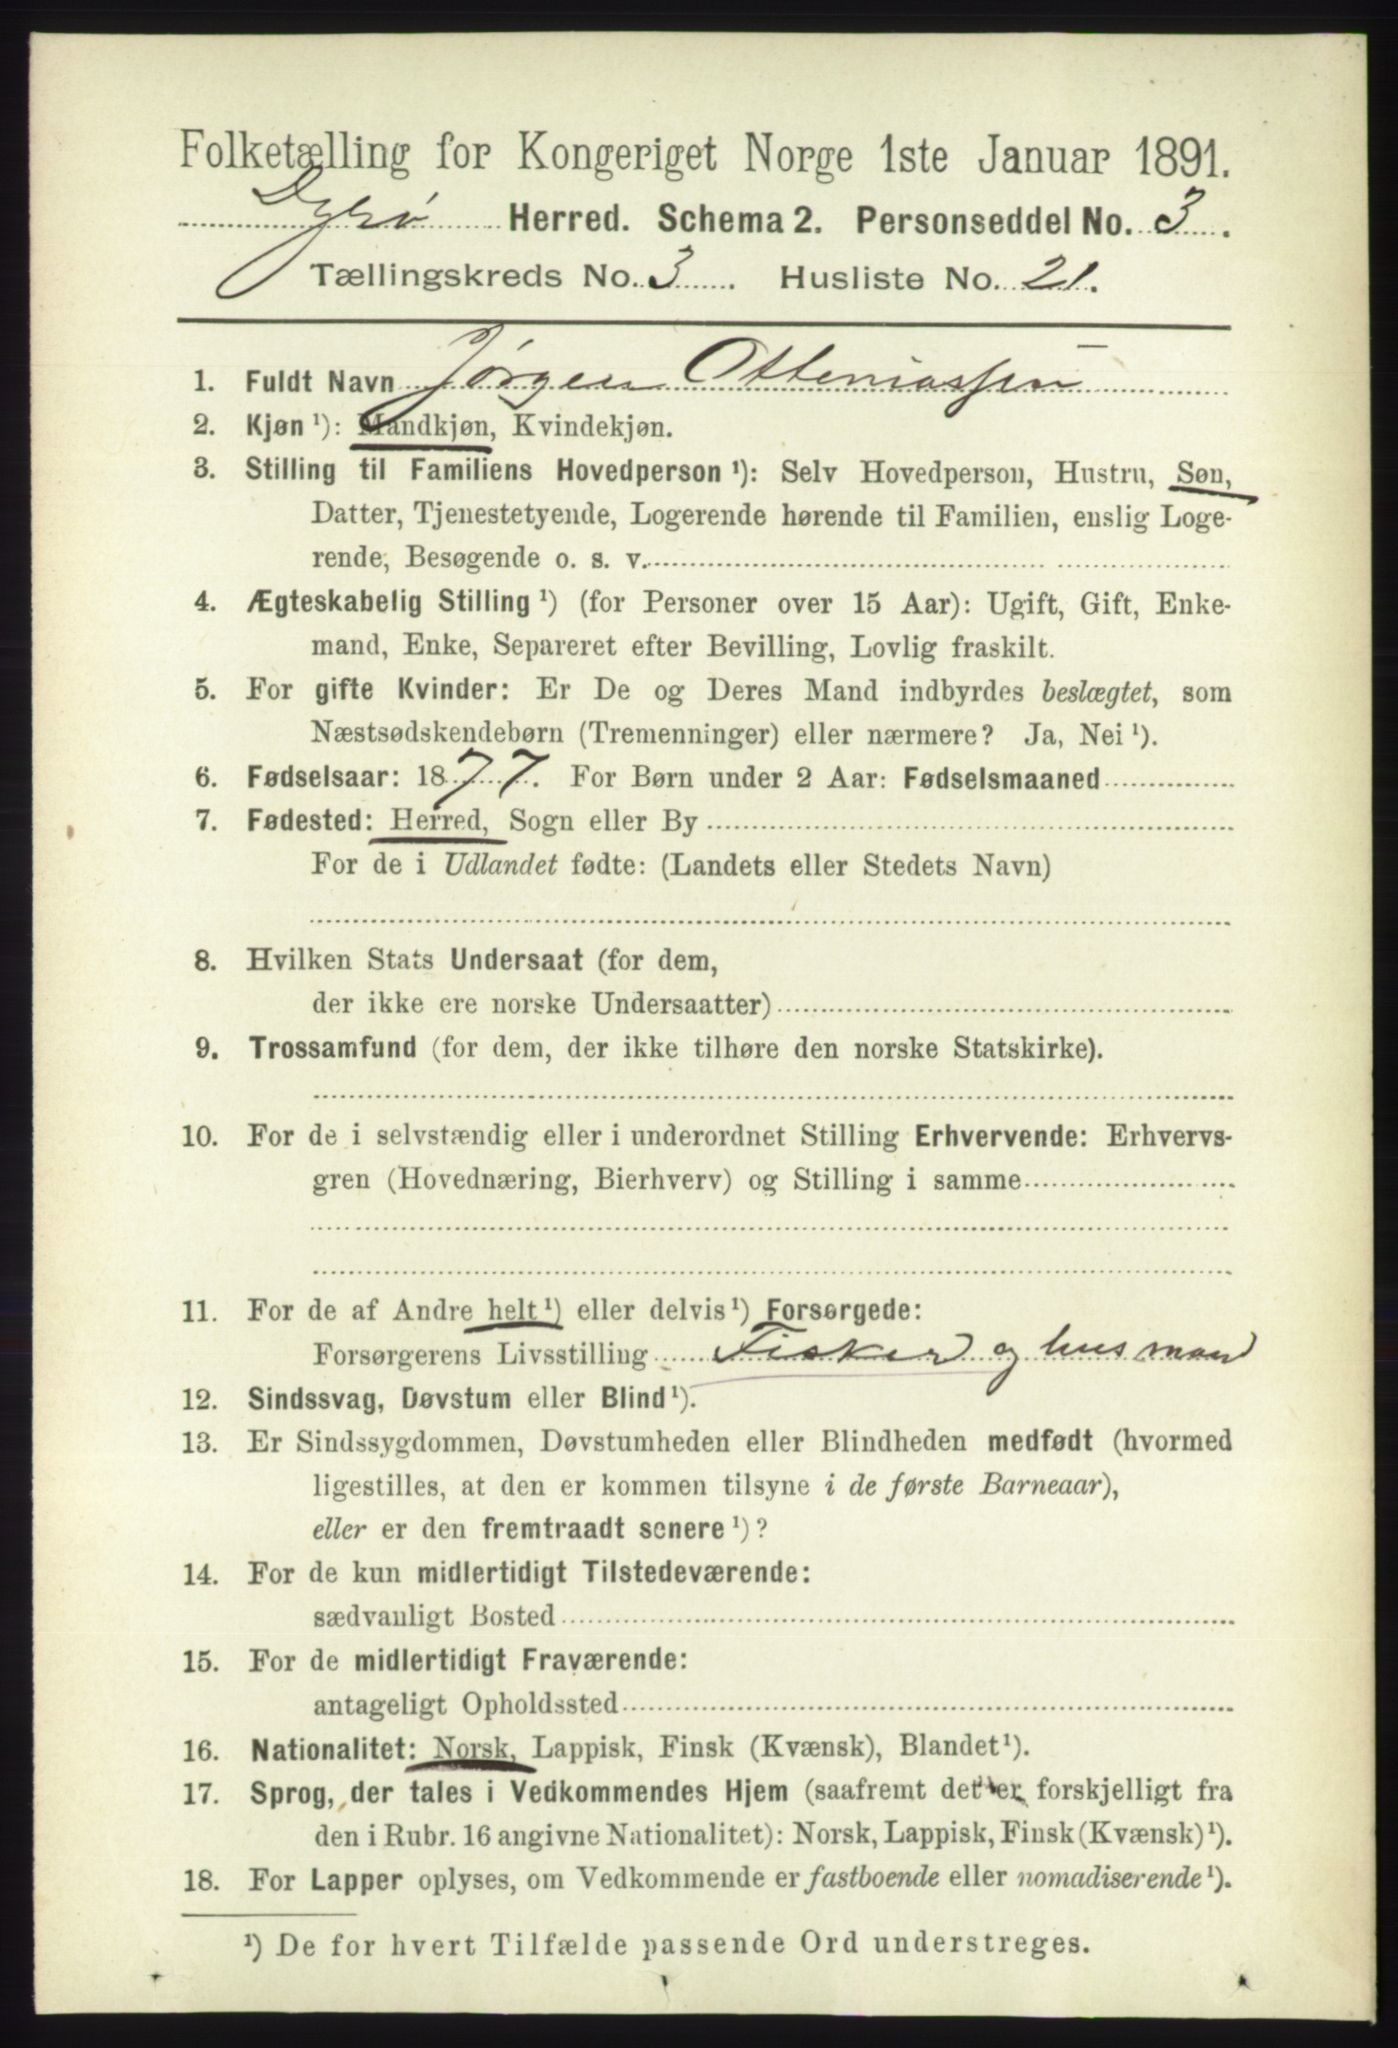 Folketælling for Kongeriget Norge 1ste Januar 1891.
Dyrø Herred. Schema 2. Personseddel No. 3.
Tællingskreds No. 3. Husliste No. 21.
1. Fuldt Navn Jørgen Otteniassen
2. Kjøn ¹): Mandkjøn, Kvindekjøn.
3. Stilling til Familiens Hovedperson ¹): Selv Hovedperson, Hustru, Søn,
Datter, Tjenestetyende, Logerende hørende til Familien, enslig Loge-
rende, Besøgende o. s. v.
4. Ægteskabelig Stilling ¹) (for Personer over 15 Aar): Ugift, Gift, Enke-
mand, Enke, Separeret efter Bevilling, Lovlig fraskilt.
5. For gifte Kvinder: Er De og Deres Mand indbyrdes beslægtet, som
Næstsødskendebørn (Tremenninger) eller nærmere? Ja, Nei ¹).
6. Fødselsaar: 1877. For Børn under 2 Aar: Fødselsmaaned
7. Fødested: Herred, Sogn eller By
For de i Udlandet fødte: (Landets eller Stedets Navn)
8. Hvilken Stats Undersaat (for dem,
der ikke ere norske Undersaatter)
9. Trossamfund (for dem, der ikke tilhøre den norske Statskirke).
10. For de i selvstændig eller i underordnet Stilling Erhvervende: Erhvervs-
gren (Hovednæring, Bierhverv) og Stilling i samme
11. For de af Andre helt ¹) eller delvis ¹) Forsørgede:
Forsørgerens Livsstilling Fisker og husmand
12. Sindssvag, Døvstum eller Blind ¹).
13. Er Sindssygdommen, Døvstumheden eller Blindheden medfødt (hvormed
ligestilles, at den er kommen tilsyne i de første Barneaar),
eller er den fremtraadt senere ¹)?
14. For de kun midlertidigt Tilstedeværende:
sædvanligt Bosted
15. For de midlertidigt Fraværende:
antageligt Opholdssted
16. Nationalitet: Norsk, Lappisk, Finsk (Kvænsk), Blandet ¹).
17. Sprog, der tales i Vedkommendes Hjem (saafremt det er forskjelligt fra
den i Rubr. 16 angivne Nationalitet): Norsk, Lappisk, Finsk (Kvænsk) ¹).
18. For Lapper oplyses, om Vedkommende er fastboende eller nomadiserende ¹).
¹) De for hvert Tilfælde passende Ord understreges.